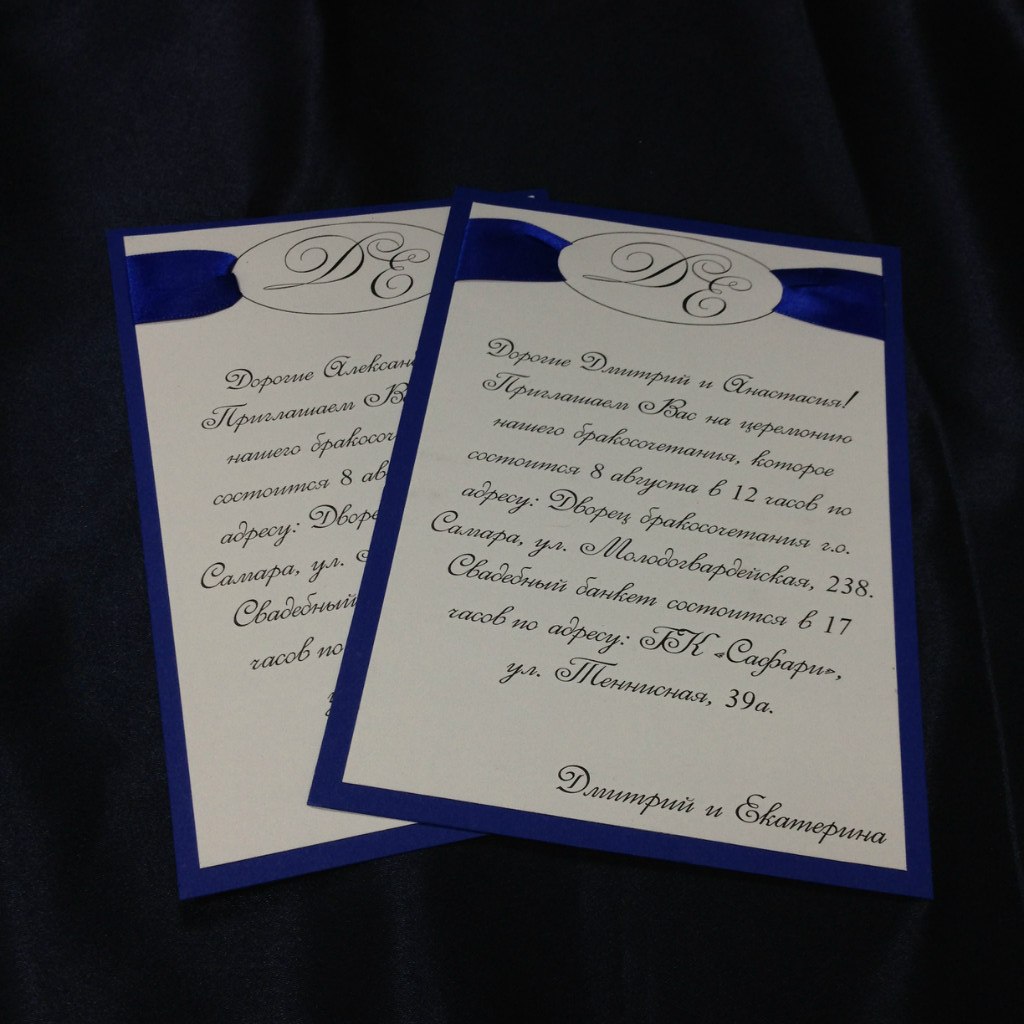 DE
Дорогие
Приглашаем
нашего
состоится 8
адресу:
Самара, ул.
Свадебный
часов по
DE
Дорогие Дмитрий и Анастасия!
Приглашаем Вас на церемонию
нашего бракосочетания, которое
состоится 8 августа в 12 часов по
адресу: Дворец бракосочетания г.о.
Самара, ул. Молодогвардейская, 238.
Свадебный банкет состоится в 17
часов по адресу: БК «Сафари»,
ул. Теннисная, 39а.
Дмитрий и Екатерина